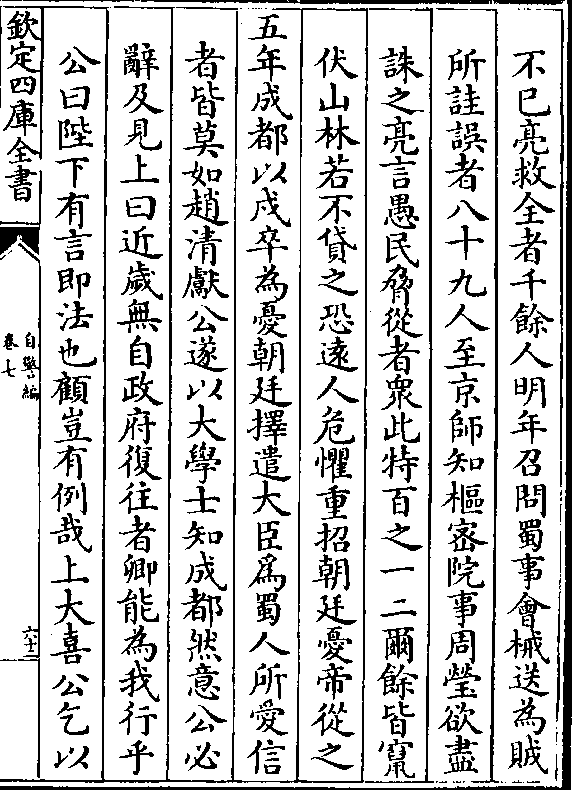 不已亮救全者千餘人明年召問蜀事會械送為賊
所詿誤者八十九人至京師知樞密院事周瑩欲盡
誅之亮言愚民脅從者衆此特百之一二爾餘皆竄
伏山林若不貸之恐逺人危懼重招朝廷憂帝從之
五年成都以戍卒為憂朝廷擇遣大臣為蜀人所愛信
者皆莫如趙清獻公遂以大學士知成都然意公必
辭及見上曰近歲無自政府復往者卿能為我行乎
公曰陛下有言即法也顧豈有例哉上大喜公乞以
欽定四庫全書
自警編
卷七
六十二